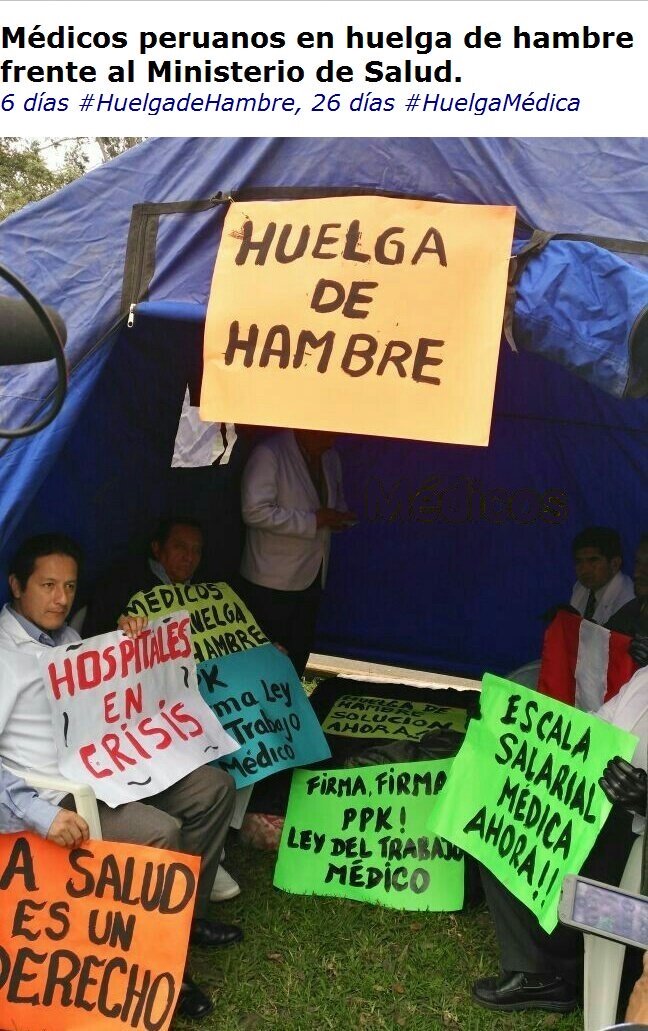 Médicos peruanos en huelga de hambre
frente al Ministerio de Salud.
6 días #HuelgadeHambre, 26 días #HuelgaMédica
HUELGA
DE
HAMBRE
Médicos
MÉDICOS
HUELGA
HAMBRE
HOSPITALES
EN
CRISIS
Ley
Trabajo
Médico
HUELGA DE
HAMBRE
SOLUCION
AHORA
FIRMA, FIRMA
PPK!
LEY DEL TRABAJO
MÉDICO
ESCALA
SALARIAL
MÉDICA
AHORA!!
A SALUD
ES UN
DERECHO